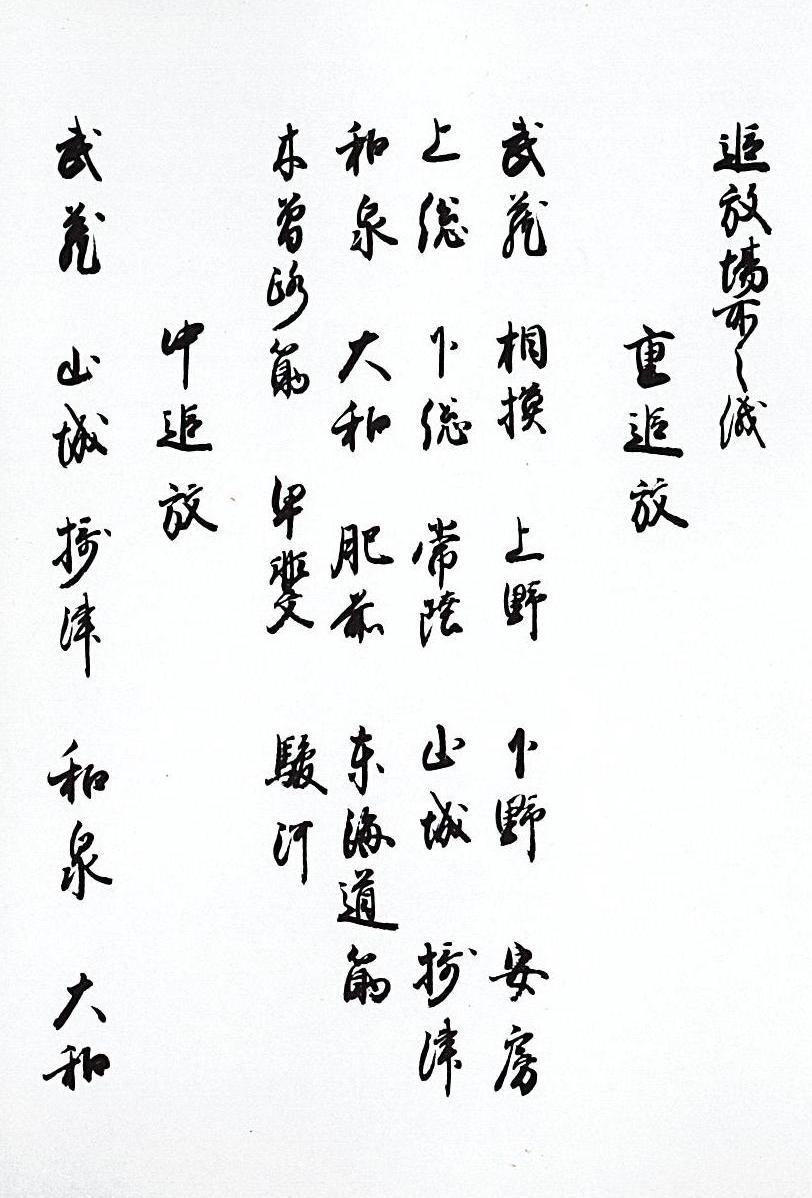 追放場所之儀
重追放
武蔵 相模 上野 下野 安房
上総 下総 常陸 山城 摂津
和泉 大和 肥前 東海道筋
木曽路筋 甲斐 駿河
中追放
武蔵 山城 摂津 和泉 大和